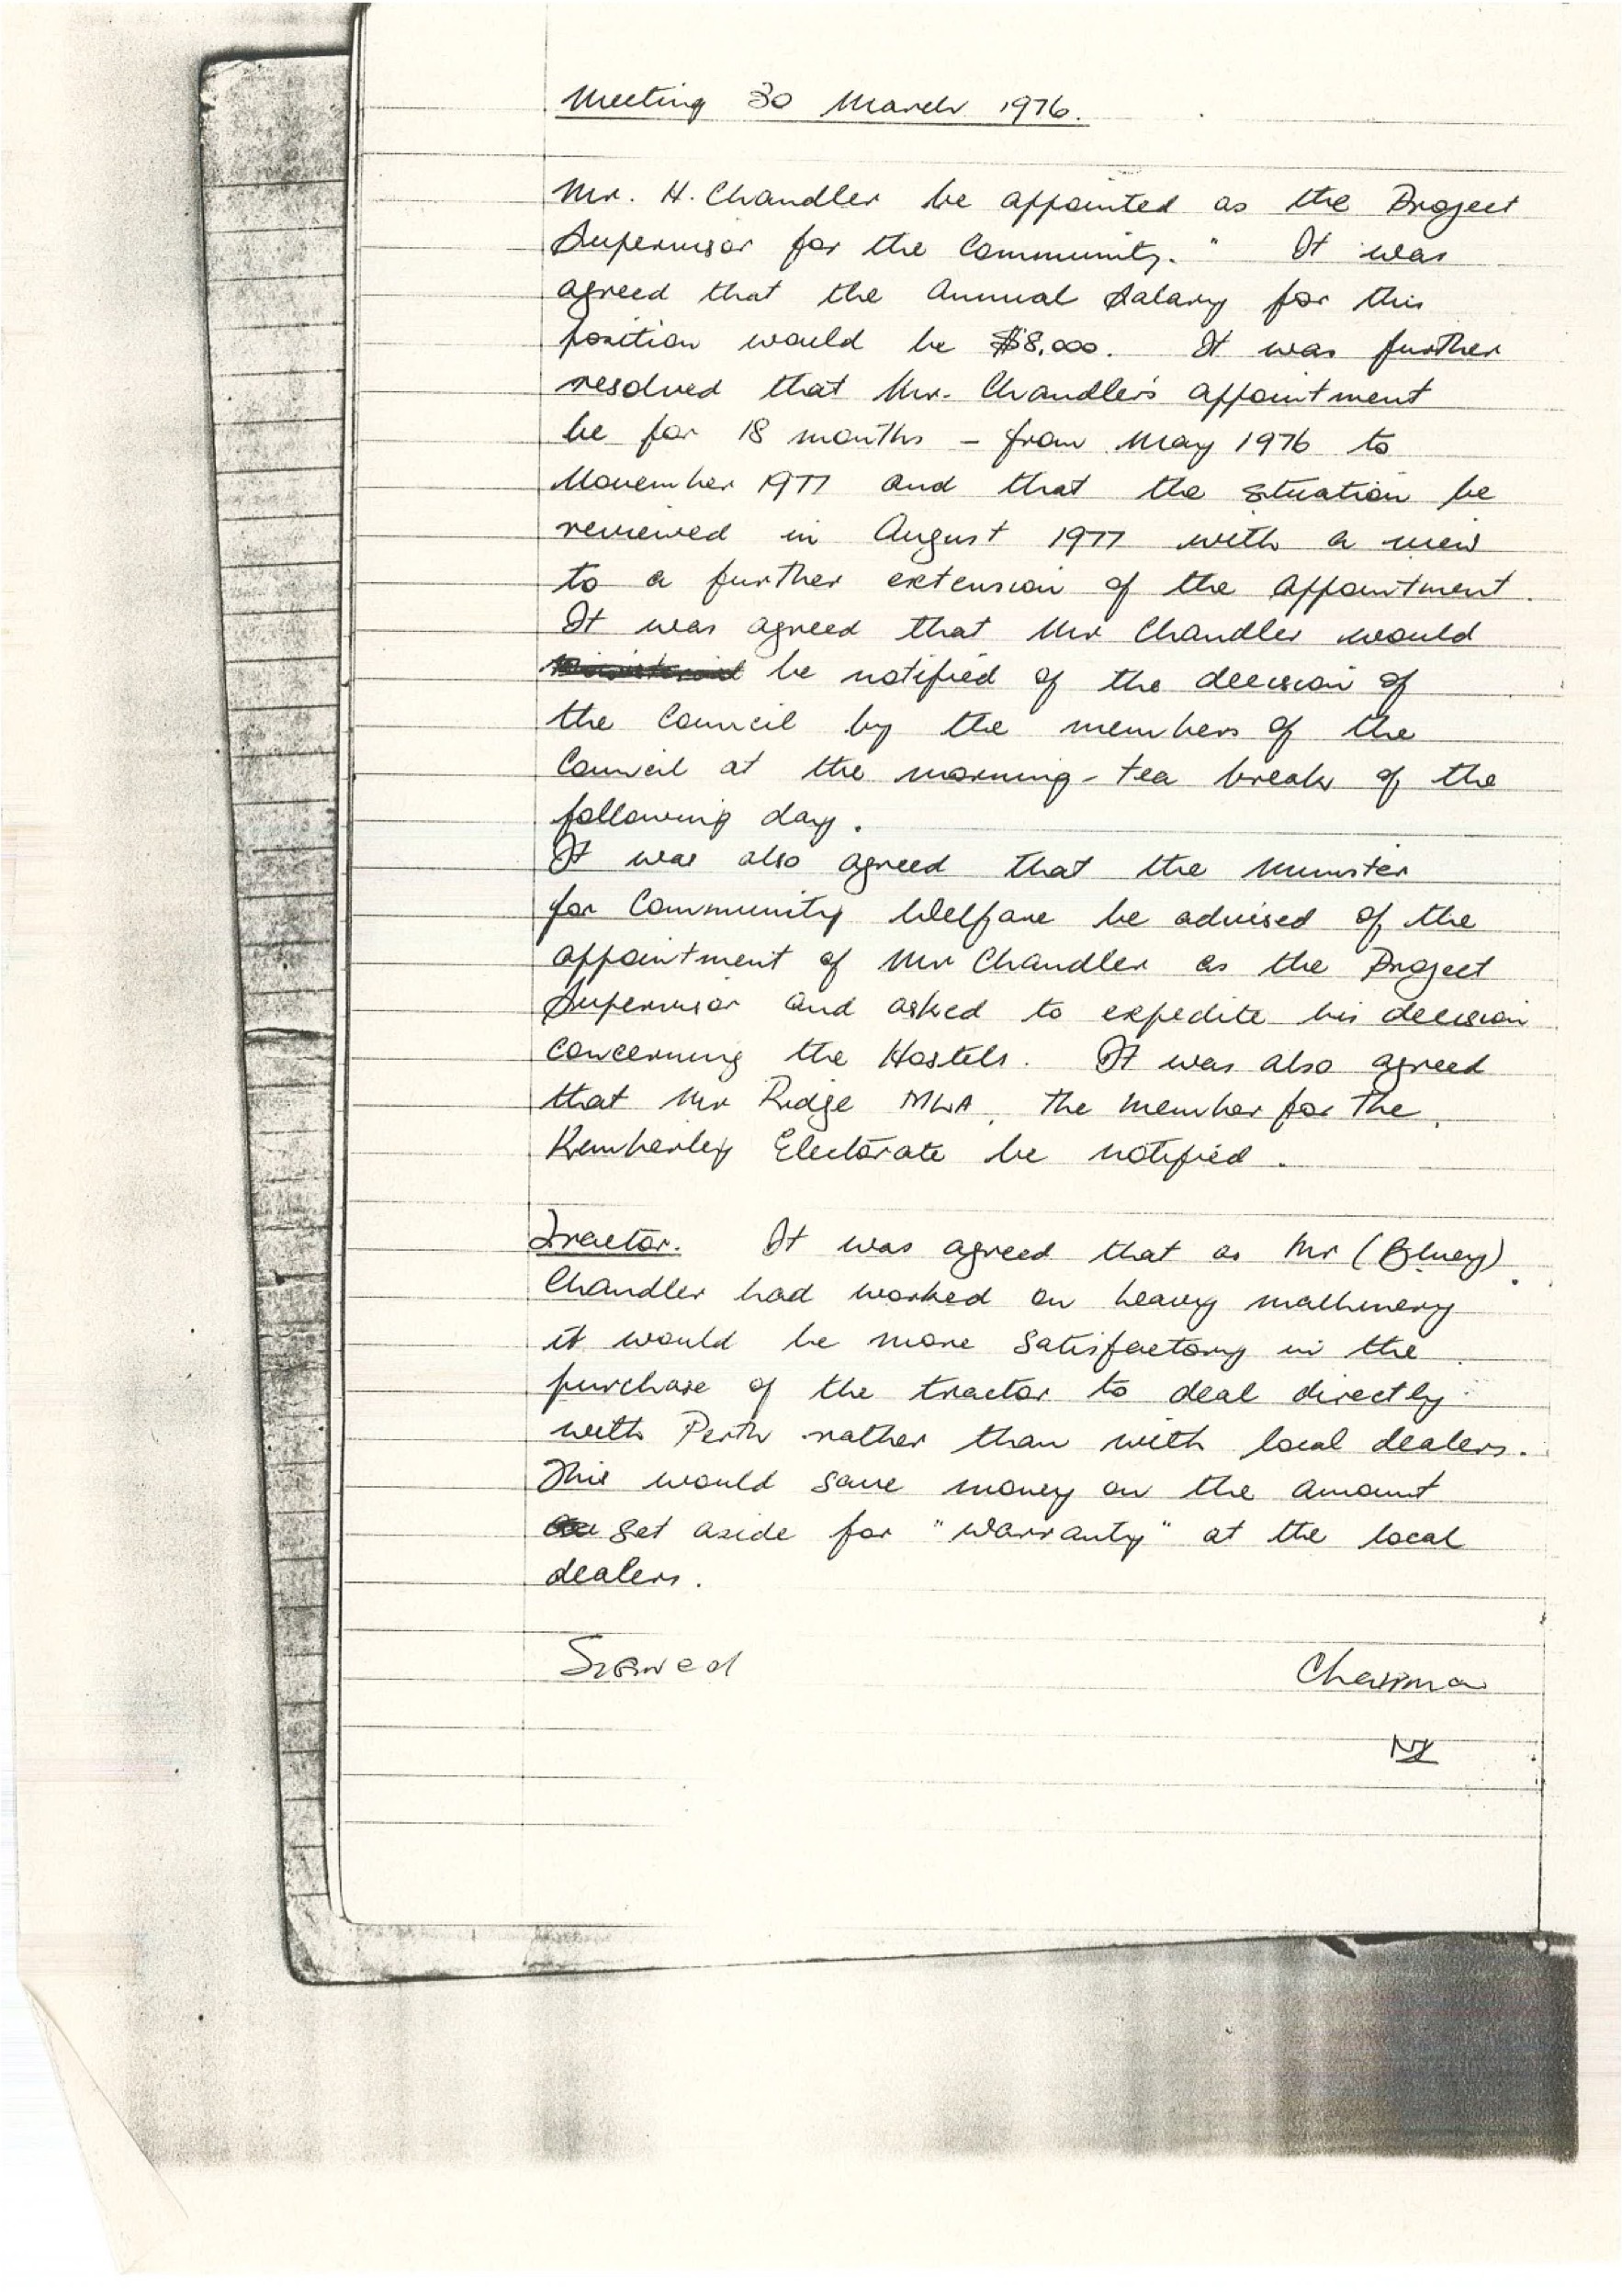 Meeting 30 March 1976.
Mr. H. Chandler be appointed as the Project
Supervisor for the Community." It was
agreed that the Annual Salary for this
position would be $8,000. It was further
resolved that Mr. Chandler's appointment
be for 18 months - from May 1976 to
November 1977 and that the situation be
reviewed in August 1977 with a view
to a further extension of the appointment.
It was agreed that Mr Chandler would
be notified of the decision of
the Council by the members of the
Council at the morning-tea break of the
following day.
It was also agreed that the Minister
for Community Welfare be advised of the
appointment of Mr Chandler as the Project
Supervisor and asked to expedite his decision
concerning the Hostels. It was also agreed
that Mr Ridge MLA, the member for the
Kimberley Electorate be notified.
Tractor. It was agreed that as Mr (Bluey)
Chandler had worked on heavy machinery
it would be more satisfactory in the
purchase of the tractor to deal directly
with Perth rather than with local dealers.
This would save money on the amount
set aside for "Warranty" at the local
dealers.
Signed Chairman